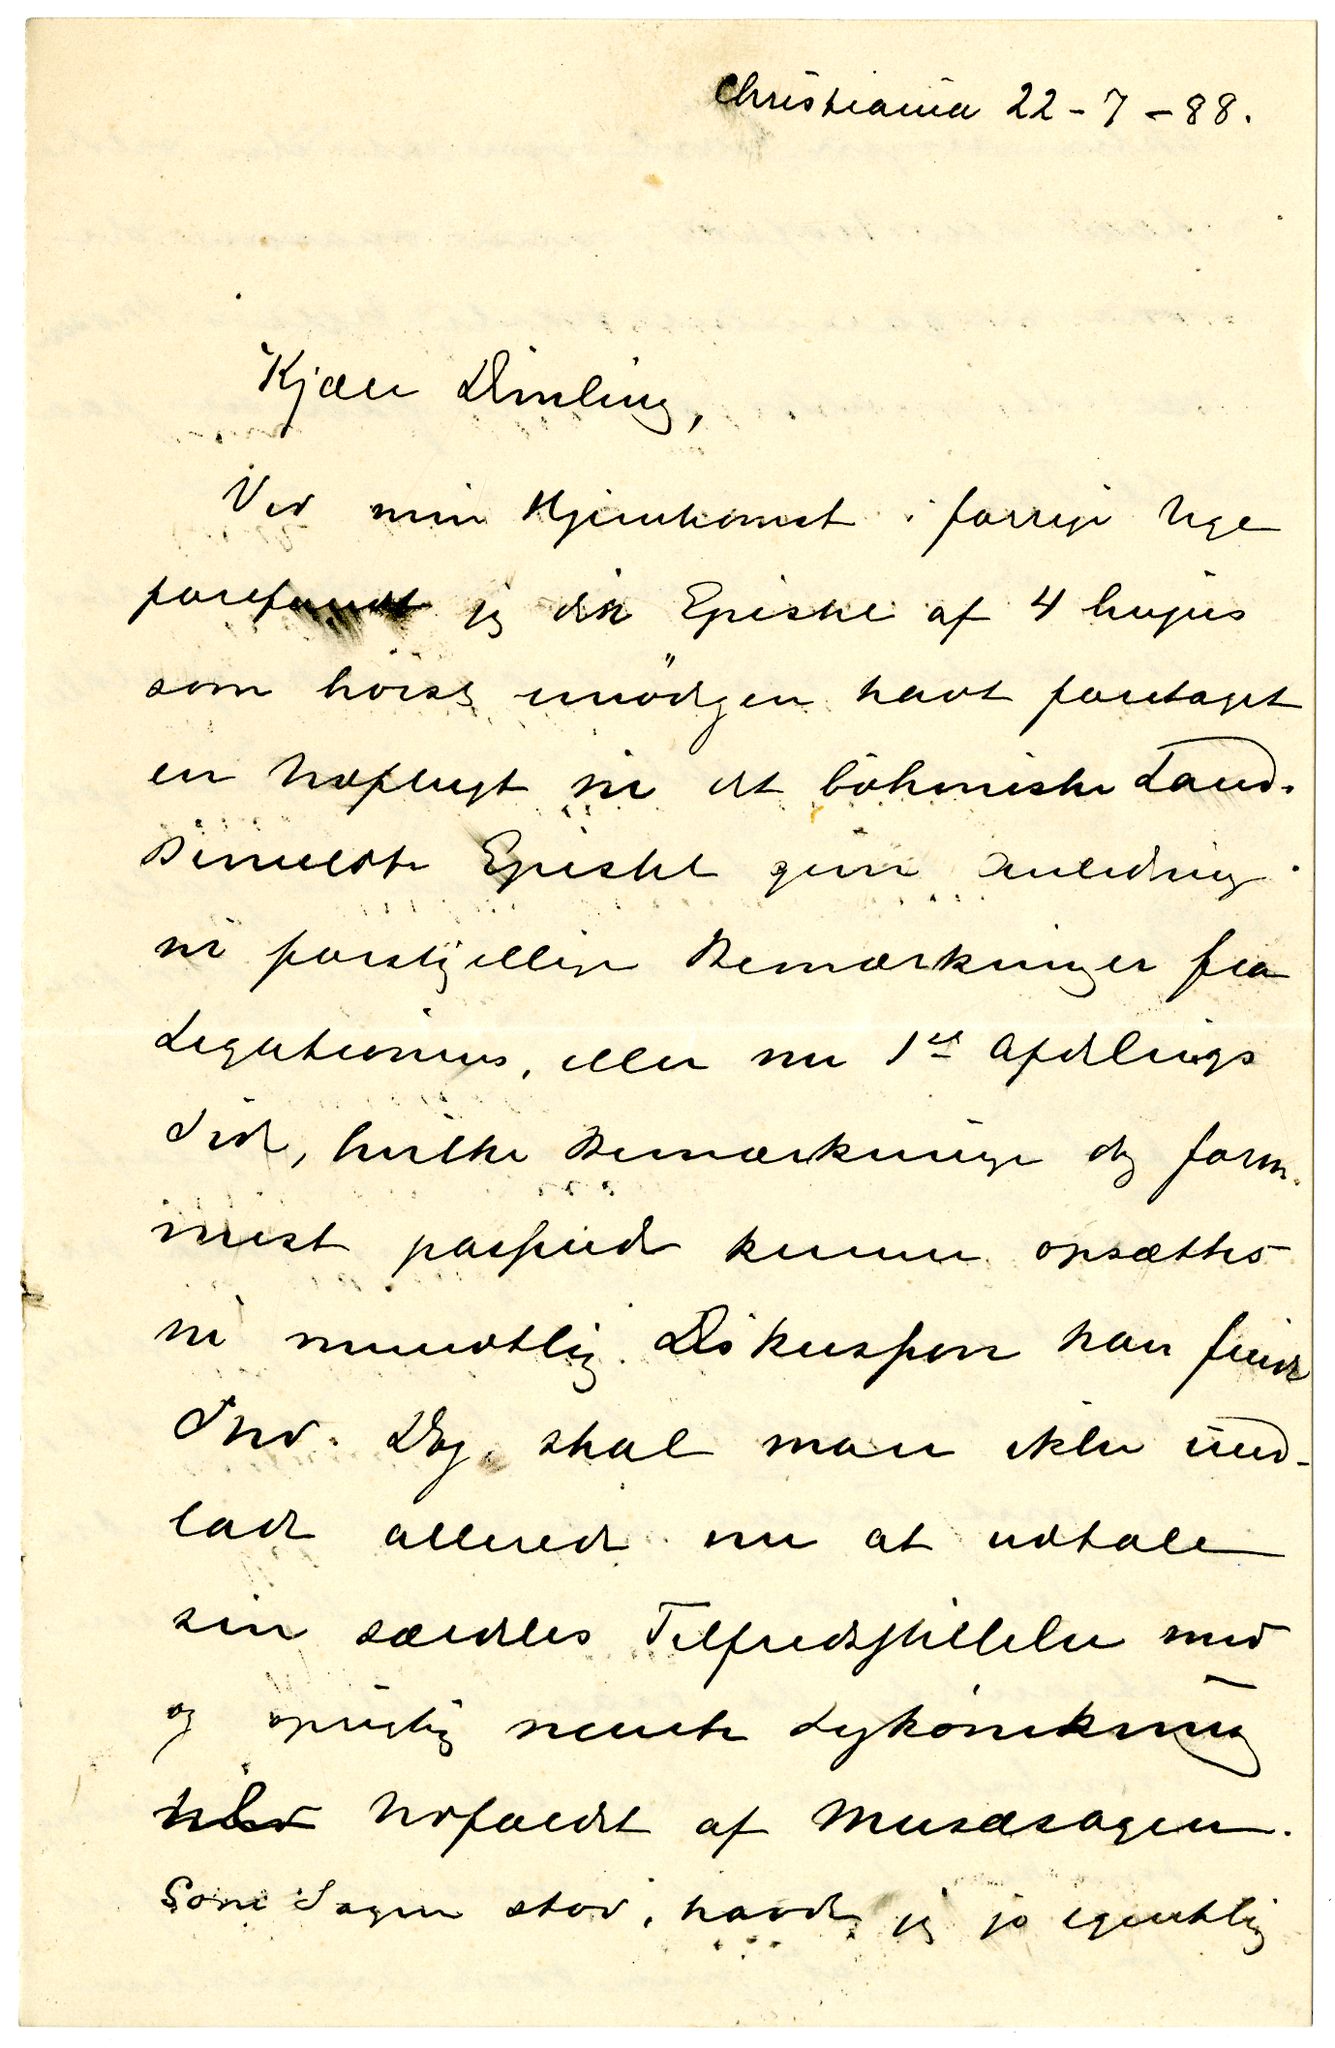 Christiania 22-7-88.
Kjære Dirling,
Ved min Hjemkomst i forrige Uge
forefandt jeg din Epistel af 4 hujus
som høist unödigen havt foretaget
en Udflugt til det böhmiske Land.
Bimeldte Epistel giver Anledning
til forskjellige Bemærkninger fra
Legationens, eller nu 1ste Afdelings
Side, hvilke Bemærkninger dog form.
mest passende kunne opsættes
til mundtlig Diskussion kan finde
Sted. Dog skal man ikke und-
lade allerede nu at udtale
sin særdeles Tilfredsstillelse med
og oprigtig mente Lykönskning
Udfaldet af Musæsagen.
Som Sagen stod, havde jeg jo egentlig